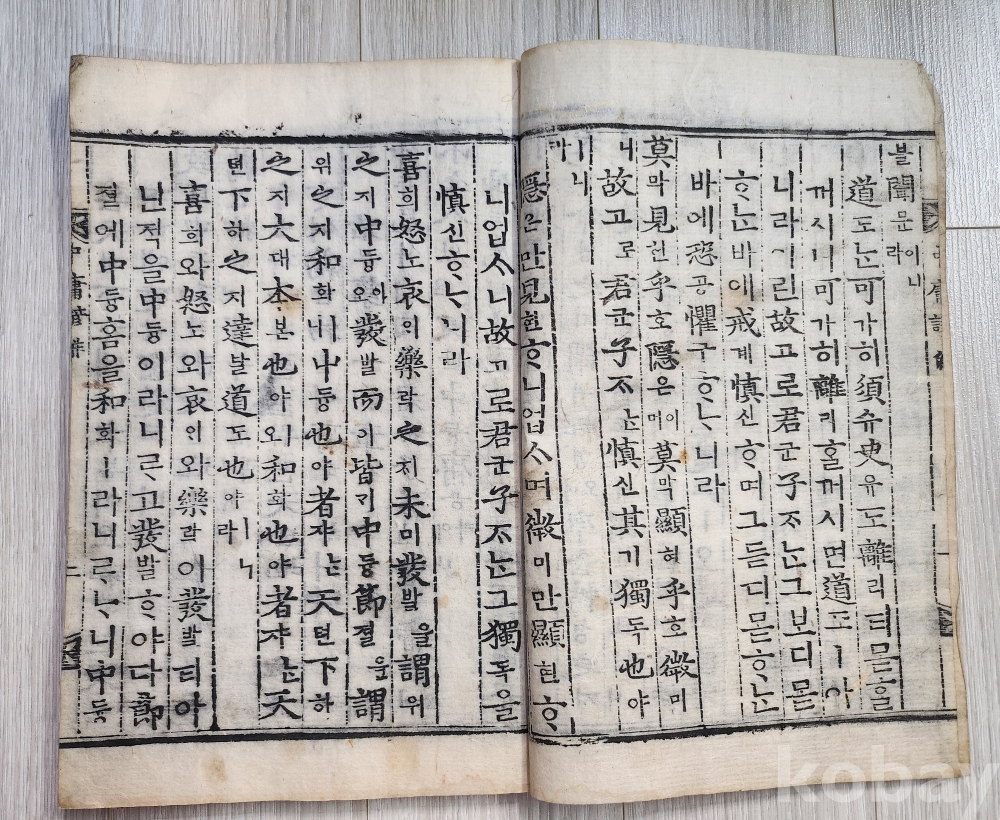 블聞문이니라
道도ᄂᆞᆫ可가히須슈臾유도離리티몯ᄒᆞᆯ
꺼시니可가히離리홀꺼시면道도ㅣ아
니라이런故고로君군子ᄌᆞᄂᆞᆫ그보디몯
ᄒᆞᄂᆞᆫ바애戒계愼신ᄒᆞ며그듣디몯ᄒᆞᄂᆞᆫ
바에恐공懼구ᄒᆞᄂᆞ니라
莫막見현乎호隱은이며莫막顯현乎호微미
니故고로君군子ᄌᆞᄂᆞᆫ愼신其기獨독也야
ㅣ니라
隱은만見현ᄒᆞ니업ᄉᆞ며微미만顯현ᄒᆞ
니업ᄉᆞ니故고로君군子ᄌᆞᄂᆞᆫ그獨독을
愼신ᄒᆞᄂᆞ니라
喜희怒노哀ᄋᆡ樂락之지未미發발을謂위
之지中듕이오發발而이皆ᄀᆡ中듕節졀을謂
위之지和화ㅣ니中듕也야者쟈ᄂᆞᆫ天텬下하
之지大대本본也야ㅣ오和화也야者쟈ᄂᆞᆫ天
텬下하之지達달道도也야ㅣ니라
喜희와怒노와哀ᄋᆡ와樂락이發발티아
닌적을中듕이라니ᄅᆞ고發발ᄒᆞ야다節
졀에中듕홈을和화ㅣ라니ᄅᆞᄂᆞ니中듕
kobay